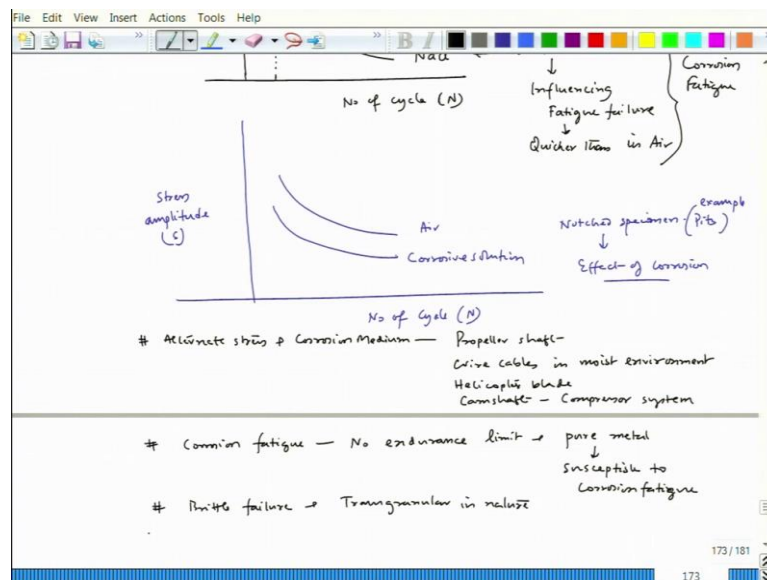 File Edit View Insert Actions Tools Help
B I
NaCl
No of cycle (N)
Influencing
Fatigue failure
Quicker than in Air
Corrosion
Fatigue
Stress
amplitude
(S)
Air
Corrosive solution
No of cycle (N)
Notched specimen - (example Pits)
Effect of corrosion
# Alternate stress & Corrosion Medium — Propeller shaft
Wire cables in moist environment
Helicopter blade
Camshaft - Compressor system
# Corrosion fatigue — No endurance limit & pure metal
Susceptible to
Corrosion fatigue
# Brittle failure & Transgranular in nature
173 / 181
173